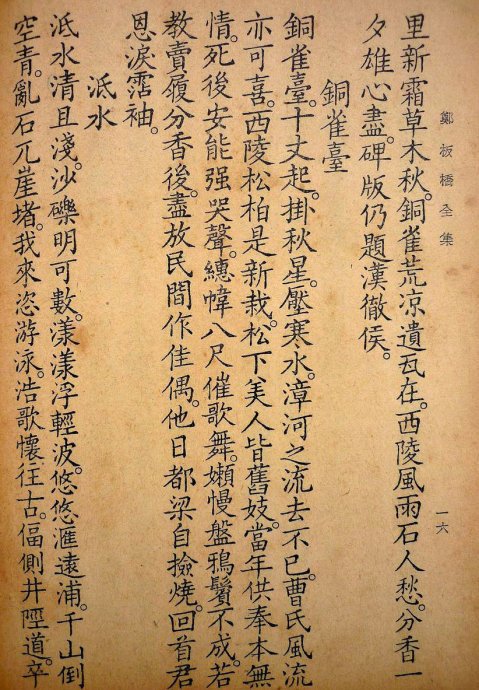 鄭板橋全集
一六
里新霜草木秋。銅雀荒凉遺瓦在。西陵風雨石人愁。分香一
夕雄心盡。碑版仍題漢徹侯。
銅雀臺
銅雀臺。十丈起。掛秋星。壓寒水。漳河之流去不已。曹氏風流
亦可喜。西陵松柏是新栽。松下美人皆舊妓。當年供奉本無
情。死後安能强哭聲。繐幃八尺催歌舞。嬾慢盤鴉鬢不成。若
教賣履分香後。盡放民間作佳偶。他日都梁自撿燒。回首君
恩淚霑袖。
泜水
泜水清且淺。沙礫明可數。漾漾浮輕波。悠悠滙遠浦。千山倒
空青。亂石兀崖堵。我來恣游泳。浩歌懷往古。偪側井陘道。卒